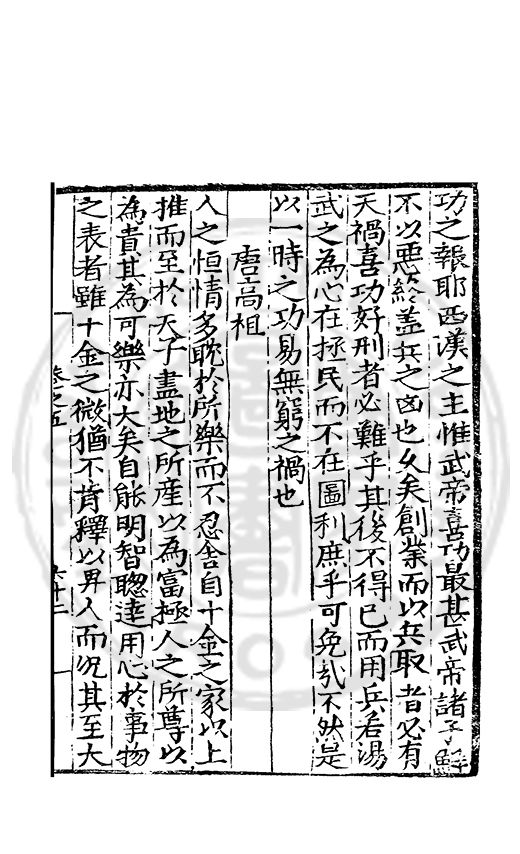 功之報耶西漢之主惟武帝喜功最甚武帝諸子鮮
不以惡終盖兵之凶也久矣創業而以兵取者必有
天禍喜功好刑者必難乎其後不得已而用兵若湯
武之為心在拯民而不在圖利庶乎可免哉不然是
以一時之功易無窮之禍也
唐高祖
人之恒情多耽於所樂而不忍舍自十金之家以上
推而至於天子盡地之所産以為富極人之所尊以
為貴其為可樂亦大矣自能明智聦達用心於事物
之表者雖十金之微猶不肯釋以畀人而况其至大
卷之五
六十二